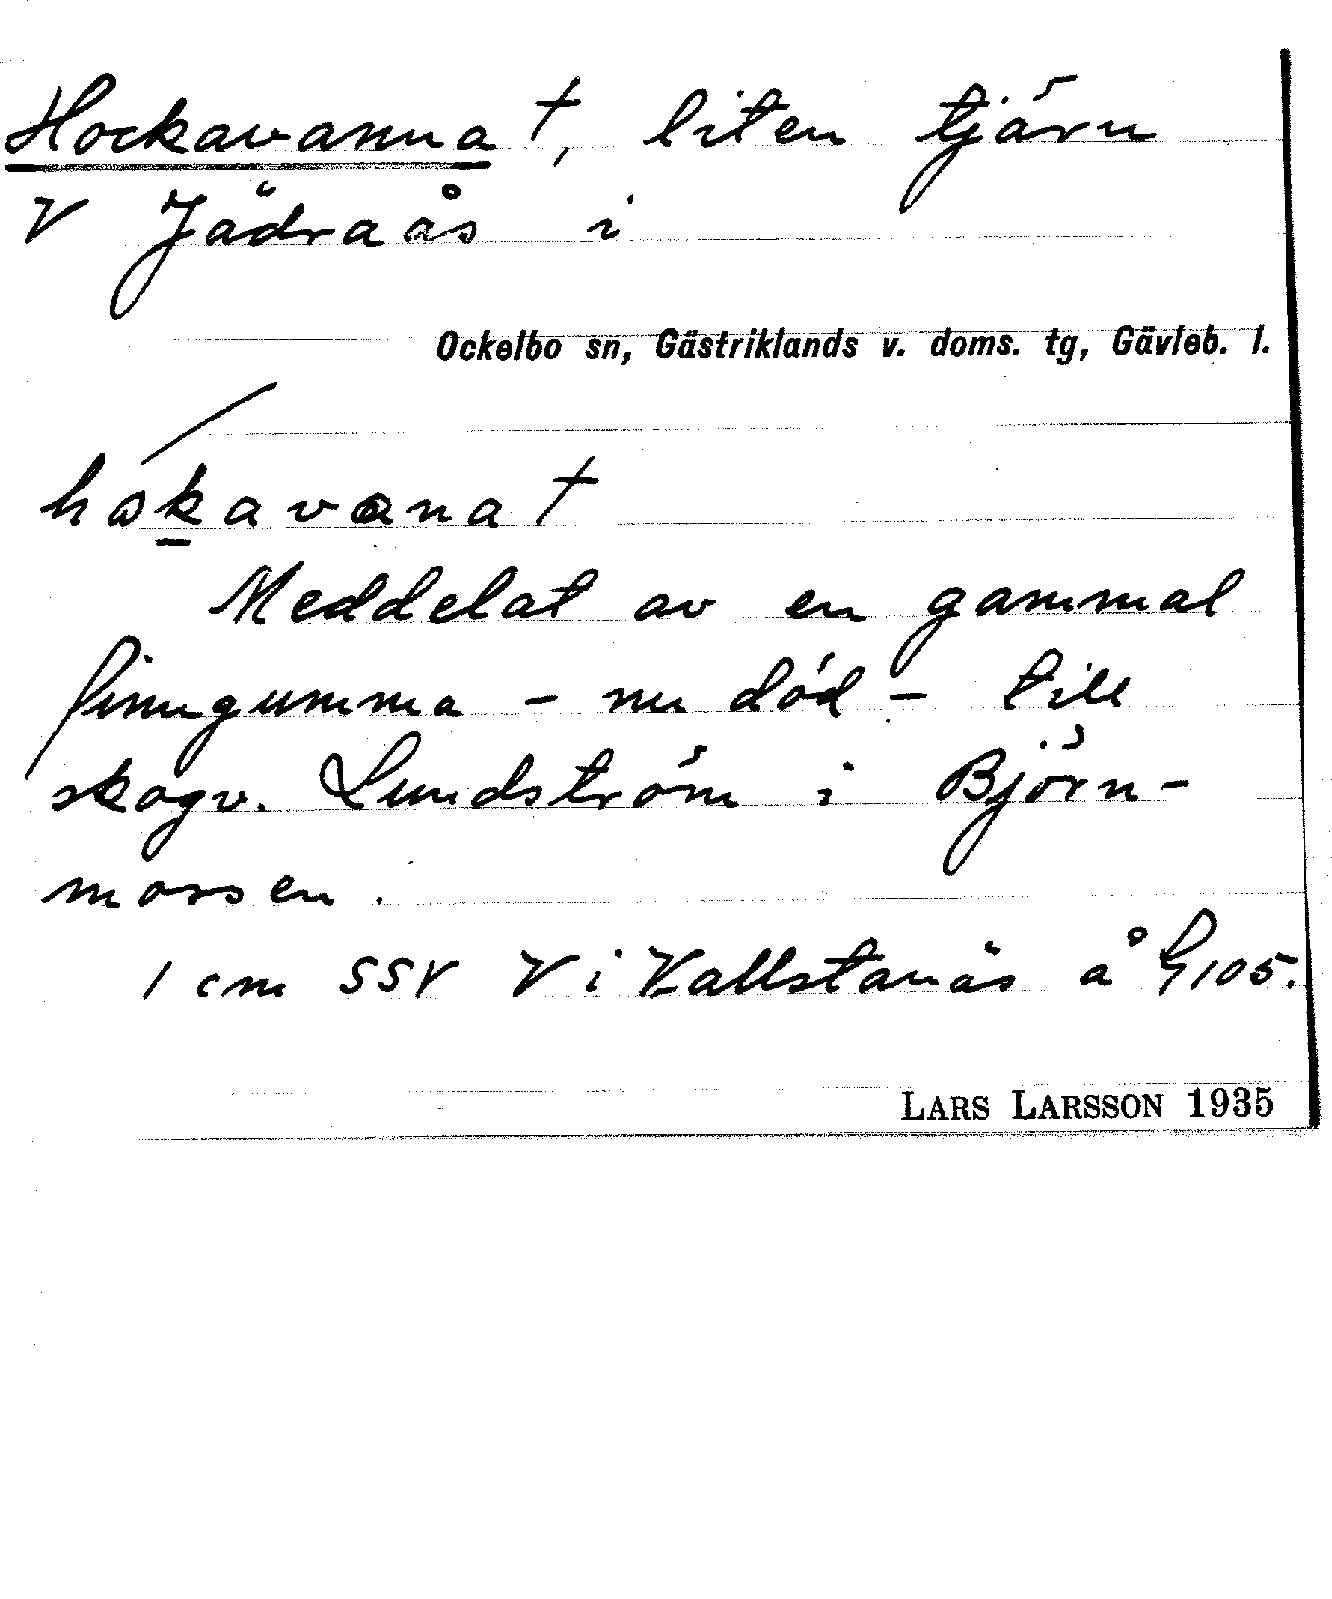 Hockavanna †, liten tjärn
V Jädraås i
Ockelbo sn, Gästriklands v. doms. tg, Gävleb. l.
håkavana †
Meddelat av en gammal
finngumma - nu död - till
skogv. Lundström i Björn-
mossen.
1 cm SSV V i Vallstanäs å G 105.
LARS LARSSON 1935